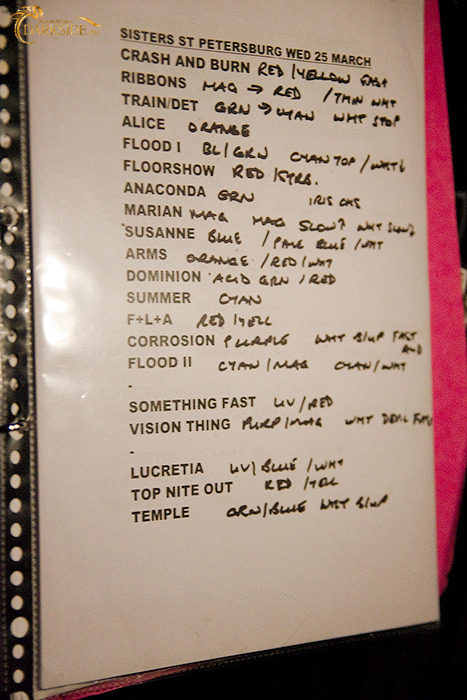 DARKSIDE
SISTERS ST PETERSBURG WED 25 MARCH
CRASH AND BURN RED / YELLOW FAST
RIBBONS MAG → RED / THIN WHT
TRAIN/DET GRN → CYAN WHT STOP
ALICE ORANGE
FLOOD I BL/GRN CYAN TOP / WHT
FLOORSHOW RED / STRB.
ANACONDA GRN IRIS CHS
MARIAN MAG MAG SLOW? WHT SLOW?
SUSANNE BLUE / PALE BLUE / WHT
ARMS ORANGE / RED / WHT
DOMINION ACID GRN / RED
SUMMER CYAN
F+L+A RED / YELL
CORROSION PURPLE WHT B/UP FAST
AND
FLOOD II CYAN / MAG CYAN / WHT
-
SOMETHING FAST UV / RED
VISION THING PURP / MAG WHT DEVIL
-
LUCRETIA UV / BLUE / WHT
TOP NITE OUT RED / YELL
TEMPLE GRN / BLUE WHT B/UP